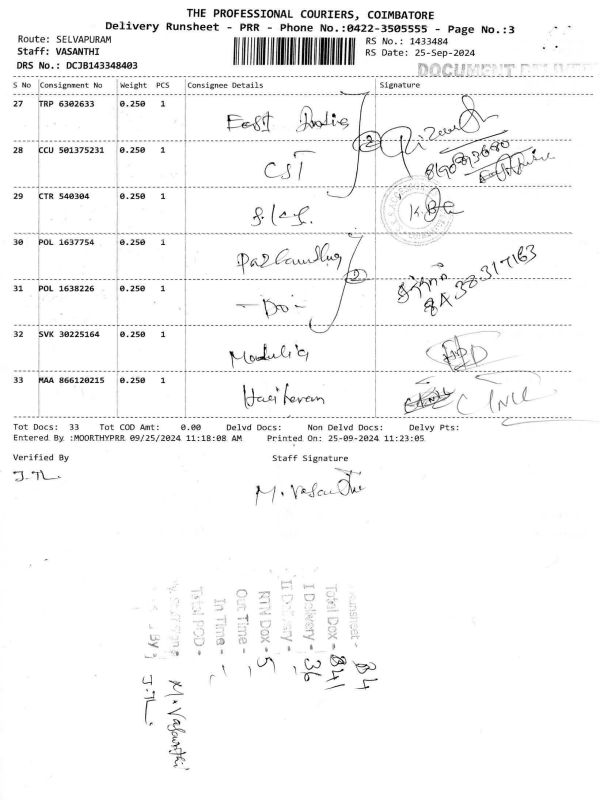 THE PROFESSIONAL COURIERS, COIMBATORE
Delivery Runsheet - PRR - Phone No.:0422-3505555 - Page No.:3
Route: SELVAPURAM RS No.: 1433484
Staff: VASANTHI RS Date: 25-Sep-2024
DRS No.: DCJB143348403 DOCUMENT
S No Consignment No Weight PCS Consignee Details Signature
27 TRP 6302633 0.250 1 East India
28 CCU 501375231 0.250 1 CST 2 8190893680
29 CTR 540304 0.250 1
30 POL 1637754 0.250 1
31 POL 1638226 0.250 1 - Do - 2 8438317163
32 SVK 30225164 0.250 1
33 MAA 866120215 0.250 1 Hariharan
Tot Docs: 33 Tot COD Amt: 0.00 Delvd Docs: Non Delvd Docs: Delvy Pts:
Entered By :MOORTHYPRR 09/25/2024 11:18:08 AM Printed On: 25-09-2024 11:23:05
Verified By Staff Signature
M. Vasanthi
Runsheet - 84
Total Dox - 841
I Delivery - 36
II Delivery -
RTN Dox - 5
Out Time -
In Time -
Total POD -
M. Vasanthi
By